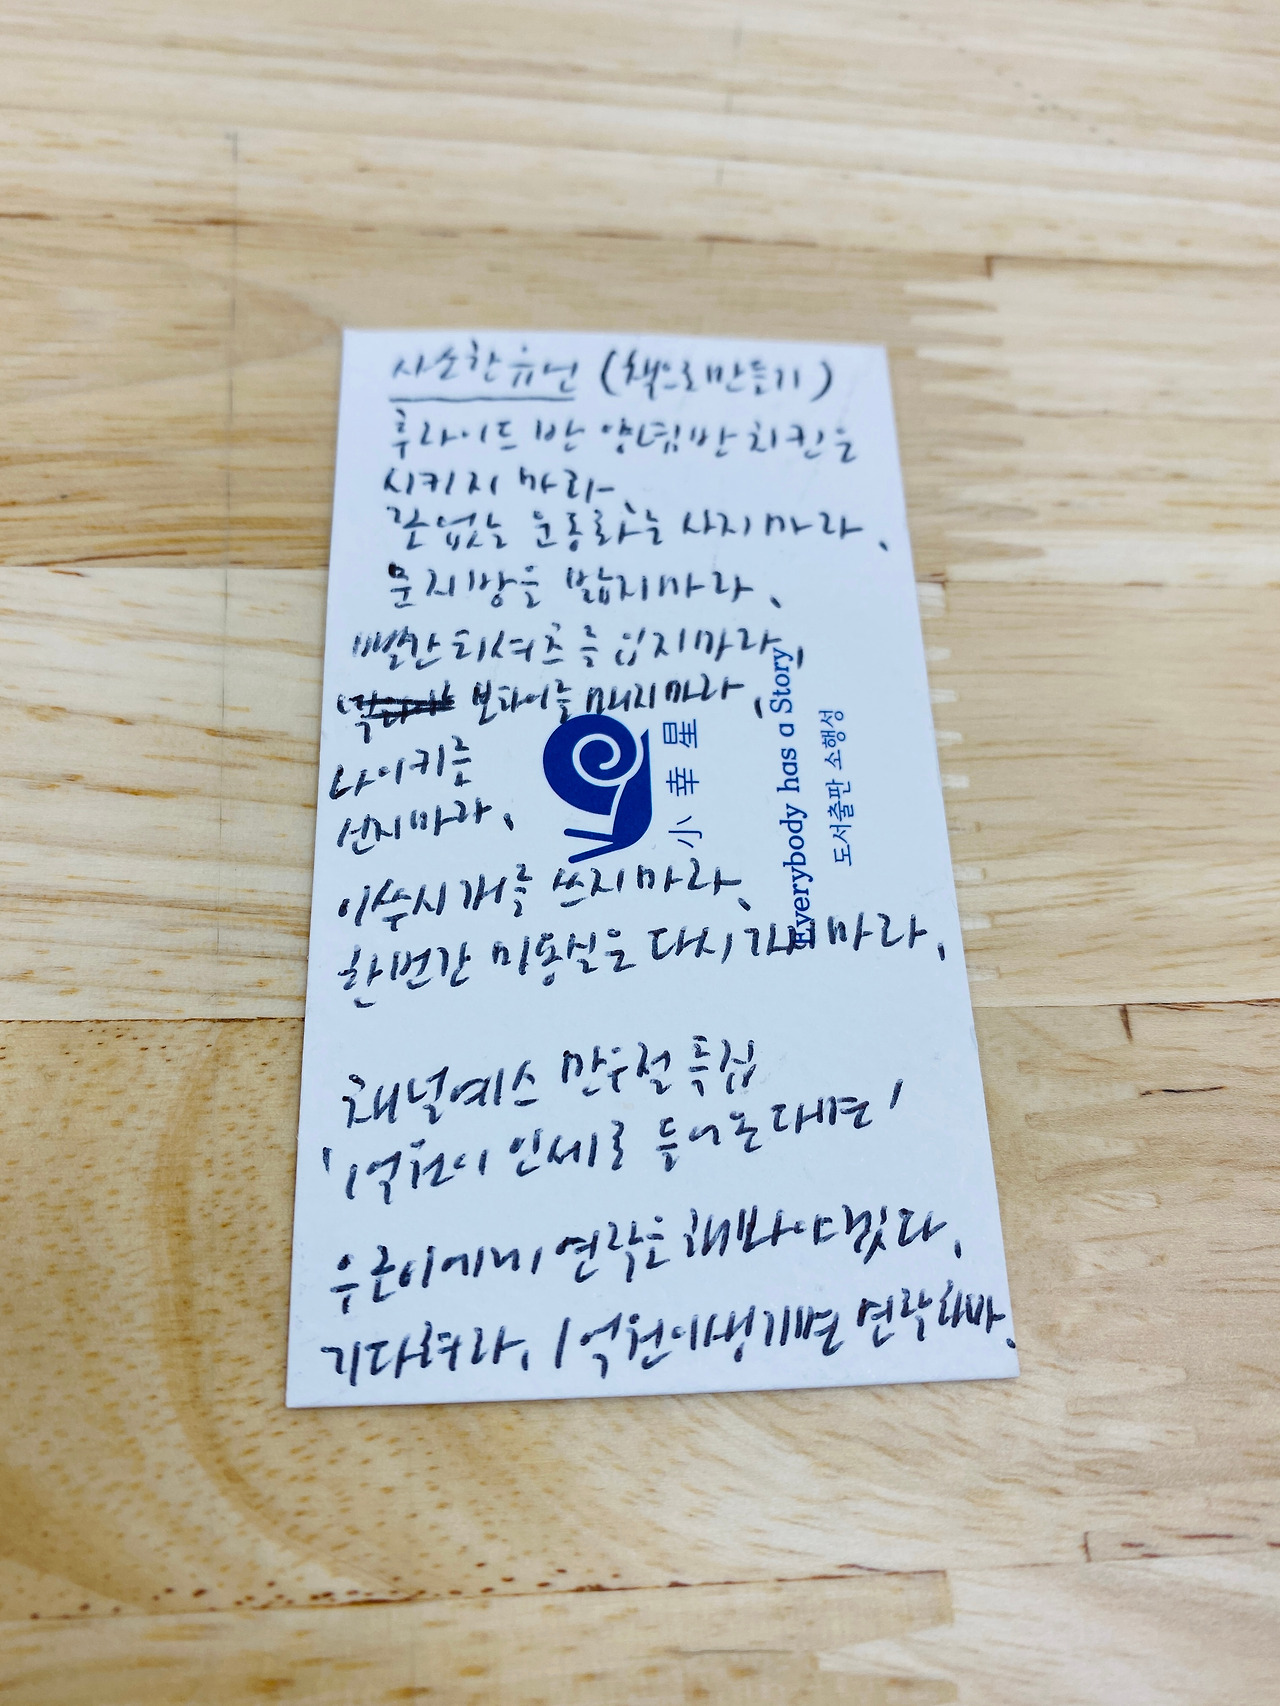 사소한 유넌 (책으로 만들기)
후라이드 반 양념 반 치킨은
시키지 마라.
끈 없는 운동화는 사지 마라.
문지방을 밟지 마라.
빨간 티셔츠를 입지 마라.
보타이를 매지 마라.
나이키를
신지 마라.
이쑤시개를 쓰지 마라.
한번 간 미용실은 다시 가지 마라.
채널예스 만우절 특집
'1억원이 인세로 들어온다면'
우근이에게 연락을 해봐야겠다.
기다려라. 1억원이 생기면 연락하마.
小幸星
Everybody has a Story
도서출판 소행성